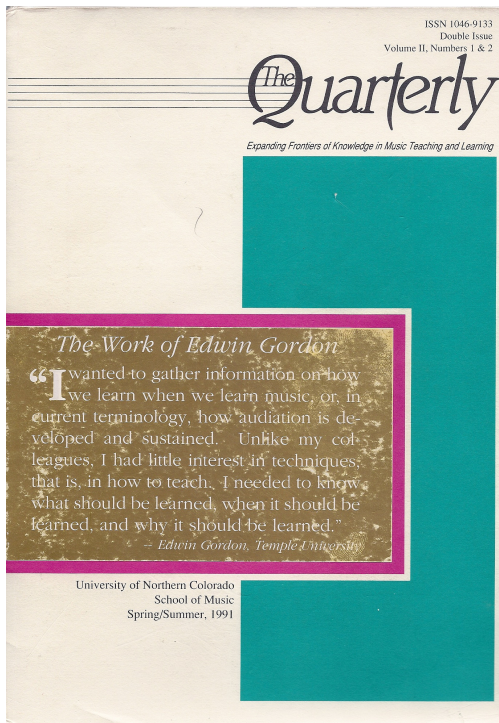 ISSN 1046-9133
Double Issue
Volume II, Numbers 1 & 2
The Quarterly
Expanding Frontiers of Knowledge in Music Teaching and Learning
The Work of Edwin Gordon
“I wanted to gather information on how
we learn when we learn music, or, in
current terminology, how audiation is de-
veloped and sustained. Unlike my col-
leagues, I had little interest in techniques,
that is, in how to teach. I needed to know
what should be learned, when it should be
learned, and why it should be learned.”
– Edwin Gordon, Temple University
University of Northern Colorado
School of Music
Spring/Summer, 1991